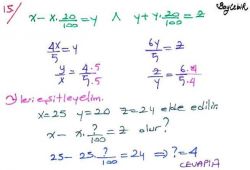 BayÇelik
15/ x - x · 20/100 = y ∧ y + y · 20/100 = z
4x/5 = y 6y/5 = z
y/x = 4·5/5·5 z/y = 6·4/5·4
y leri eşitleyelim.
x = 25 y = 20 z = 24 elde edilir.
x - x · ?/100 = z olur?
25 - 25 · ?/100 = 24 ⇒ ? = 4
CEVAP:A